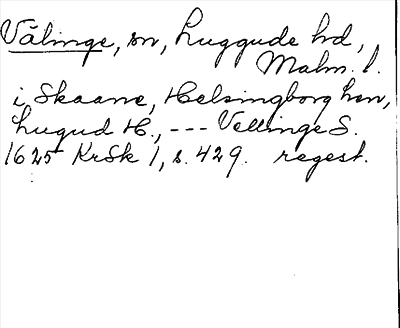 Välinge, sn, Luggude hd,
Malm. l.
i Skaane, Helsingborg hen,
Lugud H., --- Vellinge S.
1625 KrSk 1, s. 429. regest.